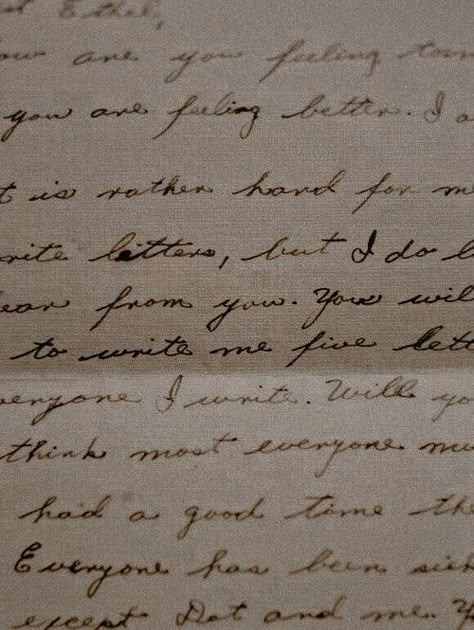 Ethel,
are you feeling
you are feeling better. I
is rather hard for
letters, but I do
from you. You
to write me five
I write. Will
think most everyone
had a good time
Everyone has been
except Dot and me.